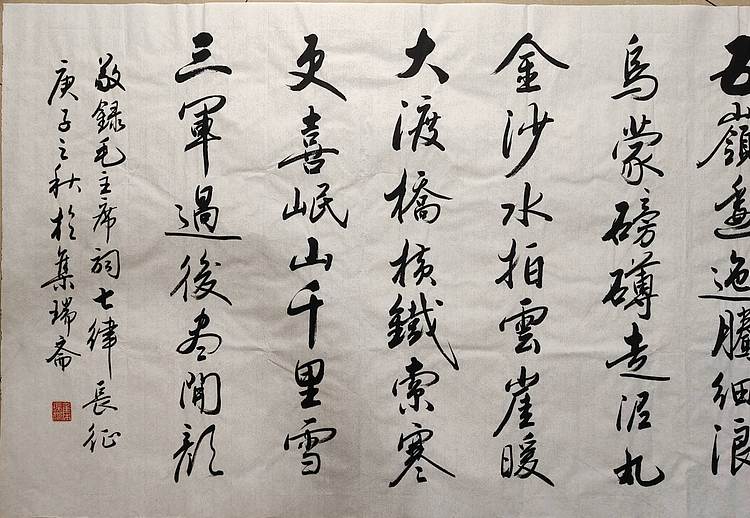 五嶺逶迤騰細浪
烏蒙磅礴走泥丸
金沙水拍雲崖暖
大渡橋横鐵索寒
更喜岷山千里雪
三軍過後盡開顔
敬録毛主席詞七律長征
庚子之秋於集瑞斋